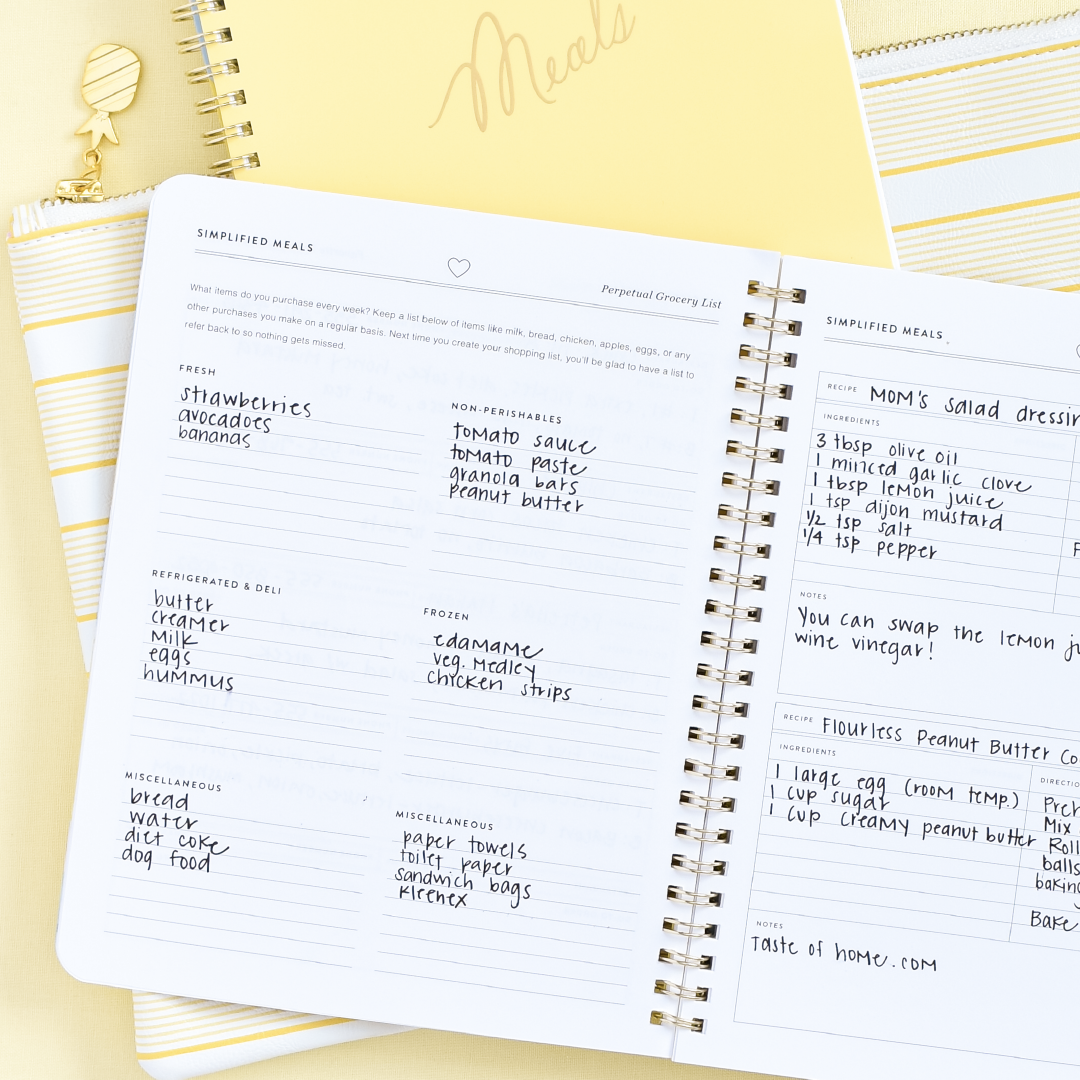 Meals
SIMPLIFIED MEALS
Perpetual Grocery List
What items do you purchase every week? Keep a list below of items like milk, bread, chicken, apples, eggs, or any
other purchases you make on a regular basis. Next time you create your shopping list, you'll be glad to have a list to
refer back to so nothing gets missed.
FRESH
strawberries
avocadoes
bananas
NON-PERISHABLES
tomato sauce
tomato paste
granola bars
peanut butter
REFRIGERATED & DELI
butter
creamer
milk
eggs
hummus
FROZEN
edamame
veg. medley
chicken strips
MISCELLANEOUS
bread
water
diet coke
dog food
MISCELLANEOUS
paper towels
toilet paper
sandwich bags
kleenex
SIMPLIFIED MEALS
RECIPE Mom's salad dressin
INGREDIENTS
3 tbsp olive oil
1 minced garlic clove
1 tbsp lemon juice
1 tsp dijon mustard
1/2 tsp salt
1/4 tsp pepper
NOTES
You can swap the lemon ju
wine vinegar!
RECIPE Flourless Peanut Butter Co
INGREDIENTS
1 large egg (room temp.)
1 cup sugar
1 cup creamy peanut butter
DIRECTIO
Preh
Mix
Roll
balls
baking
Bake
NOTES
Taste of home.com